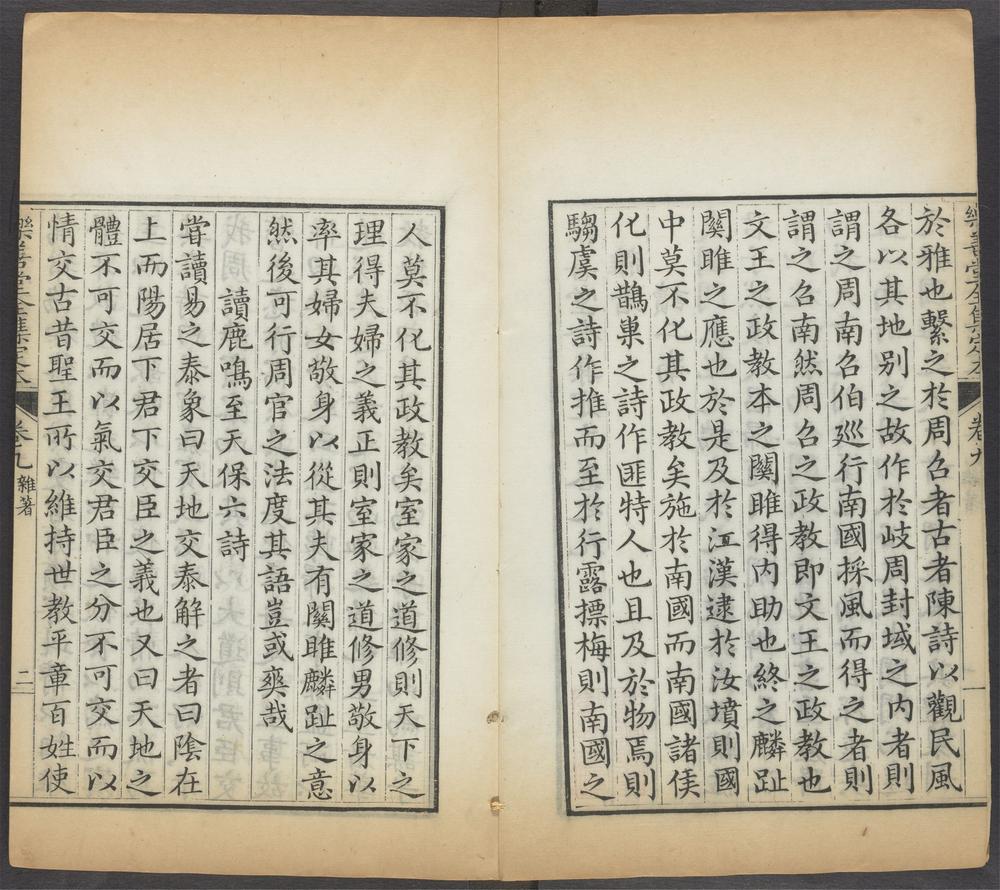 樂善堂全集定本
卷九
一
於雅也繫之於周召者古者陳詩以觀民風
各以其地別之故作於岐周封域之內者則
謂之周南召伯廵行南國採風而得之者則
謂之召南然周召之政教即文王之政教也
文王之政教本之關雎得內助也終之麟趾
關雎之應也於是及於江漢逮於汝墳則國
中莫不化其政教矣施於南國而南國諸侯
化則鵲巢之詩作匪特人也且及於物焉則
騶虞之詩作推而至於行露摽梅則南國之
人莫不化其政教矣室家之道修則天下之
理得夫婦之義正則室家之道修男敬身以
率其婦女敬身以從其夫有關雎麟趾之意
然後可行周官之法度其語豈或爽哉
讀鹿鳴至天保六詩
嘗讀易之泰象曰天地交泰解之者曰陰在
上而陽居下君下交臣之義也又曰天地之
體不可交而以氣交君臣之分不可交而以
情交古昔聖王所以維持世教平章百姓使
樂善堂全集定本
卷九 雜著
二